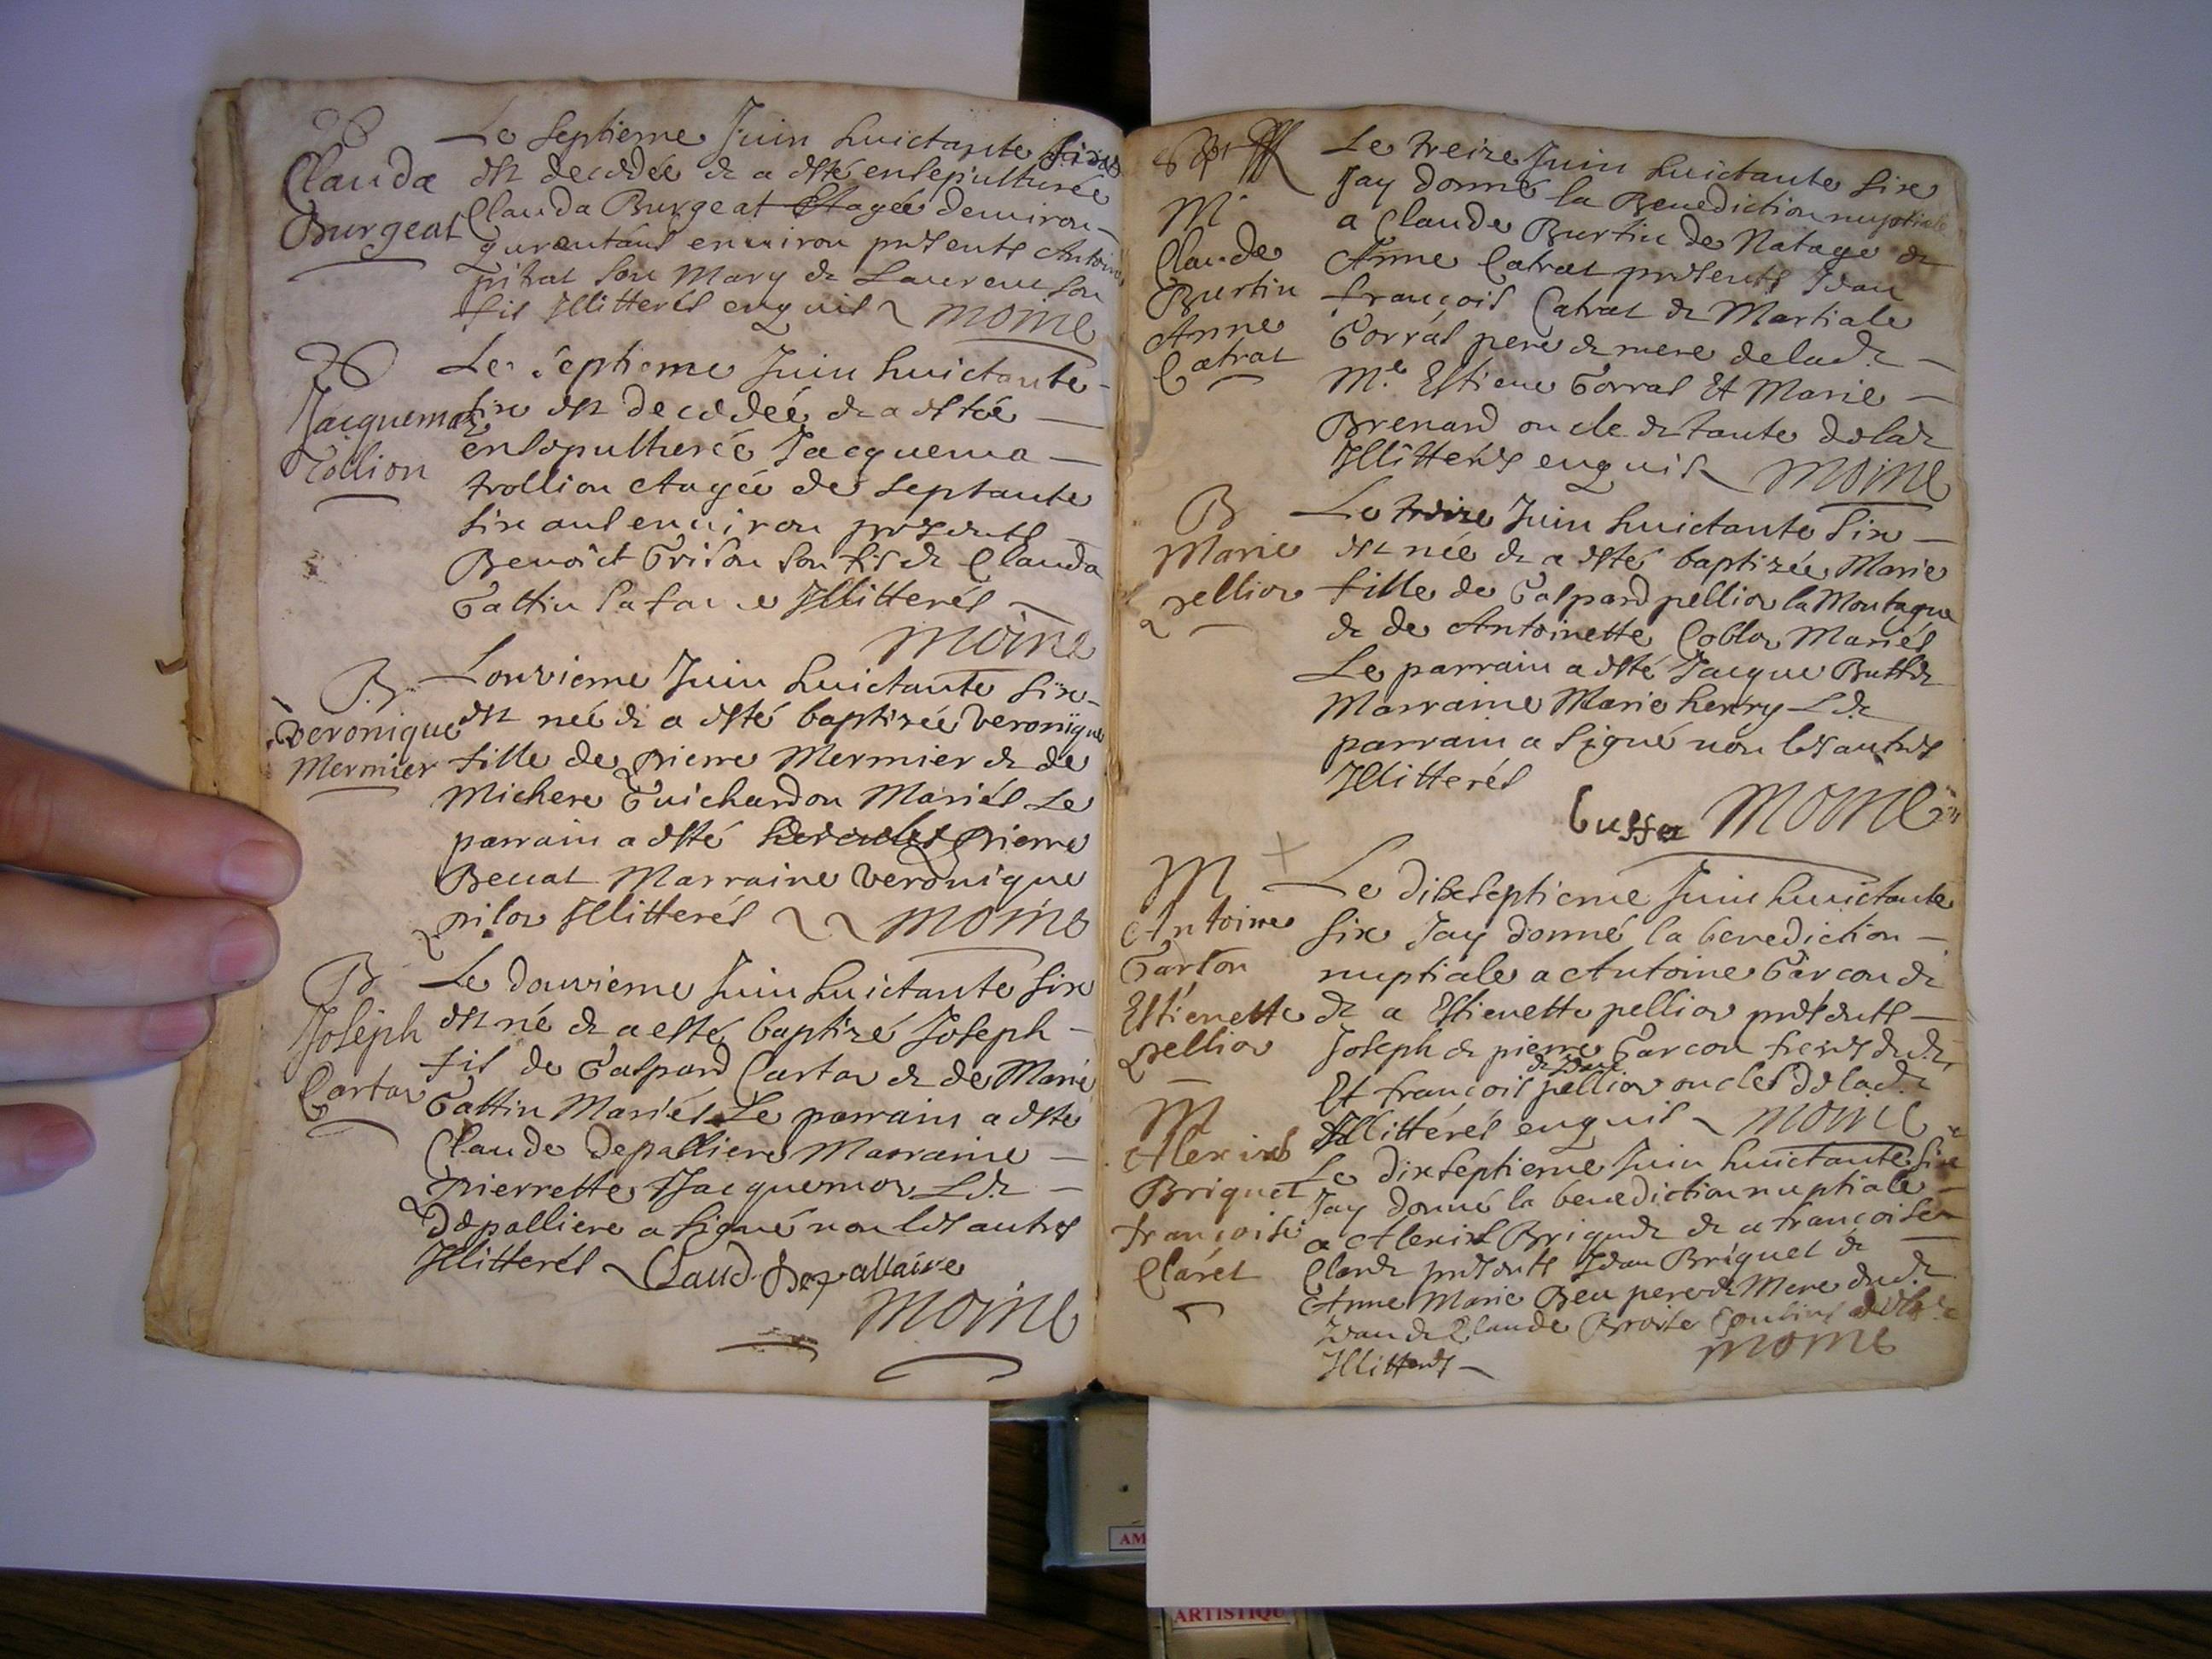 Clauda
Burgeat
Le septieme Juin huictante sixe
est decedée & a esté ensepulturée
Clauda Burgeat Etagée denviron
qurentans environ presents Antoine
pitrat son Mary & Laurent son
fis Illitterés enquis Moine
Jacquema
Tollion
Le septieme Juin huictante
sixe est decedée & a estée
ensepulthurée Jacquema
trollion Aagée de septante
six ans environ presents
Benoict Grison son fis & Clauda
Gattin Illitterés
Moine
B
Veronique
Mermier
Lonzieme Juin huictante sixe
est née & a esté baptizée Veronique
fille de pierre Mermier & de
Michere Guichardon Mariés Le
parrain a esté pierre
Beuat Marraine Veronique
pilor Illitterés Moine
B
Joseph
Cartar
Le douzieme Juin huictante sixe
est né & a esté baptizé Joseph
fis de Gaspard Cartar & de Marie
Gattin Mariés Le parrain a este
Claude Depalliere Marraine
pierrette Jacquemor Ld.
depalliere a signé non les autres
Illitterés Claud Depallaire
Moine
M
Claude
Burtin
Anne
Catrat
Le treize Juin huictante sixe
Jay donné la Benediction nuptiale
a Claude Burtin de Natage &
Anne Catrat presents Jean
françois Catrat & Martiale
Gorrat pere & mere delad.
M.e Estiene Gorrat Et Marie
Brenard oncle & tante delad
Illitterés enquis Moine
B
Marie
pellior
Le treize Juin huictante sixe
est née & a esté baptizée Marie
fille de Gaspard pellior la Montagne
& de Antoinette Coblor Mariés
Le parrain a esté Jacque Buff
Marraine Marie henry Ld.
parrain a signé non les autres
Illitterés
buffet Moine
M
Antoine
Garson
Estienette
pellior
Le dixseptieme Juin huictante
sixe Jay donné la benediction
nuptiale a Antoine Garcon &
& a Estienette pellior presents
Joseph & pierre Garcon freres dud.
& Jean
Et françois pellior oncles delad.
Illittérés enquis Moine
M
Alexis
Briquet
françoise
Claret
Le dixseptieme Juin huictante sixe
Jay donné la benediction nuptiale
a Alexis Briquet & a françoise
Claret presents Jean Briquet &
Anne Marie Beu pere & Mere dud.
Jean & Claude Broite Cousins
Illitterés Moine
AM
ARTISTIQU